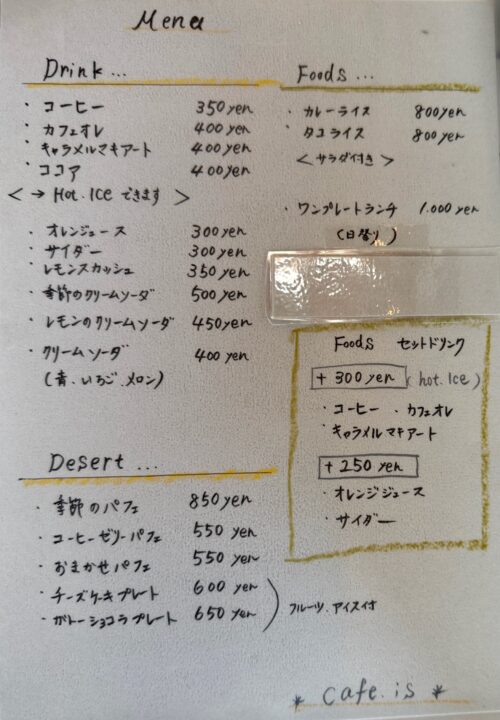 Menu
Drink...
・コーヒー 350yen
・カフェオレ 400yen
・キャラメルマキアート 400yen
・ココア 400yen
< → Hot. ICE できます >
・オレンジュース 300yen
・サイダー 300yen
・レモンスカッシュ 350yen
・季節のクリームソーダ 500yen
・レモンのクリームソーダ 450yen
・クリームソーダ 400yen
(青.いちご.メロン)
Desert...
・季節のパフェ 850yen
・コーヒーゼリーパフェ 550yen
・おまかせパフェ 550yen
・チーズケーキプレート 600yen
・ガトーショコラプレート 650yen
フルーツ.アイス付
Foods...
・カレーライス 800yen
・タコライス 800yen
<サラダ付き>
・ワンプレートランチ 1.000yen
(日替り)
Foods セットドリンク
+300yen (hot.Ice)
・コーヒー ・カフェオレ
・キャラメルマキアート
+250yen
・オレンジジュース
・サイダー
* cafe.is *